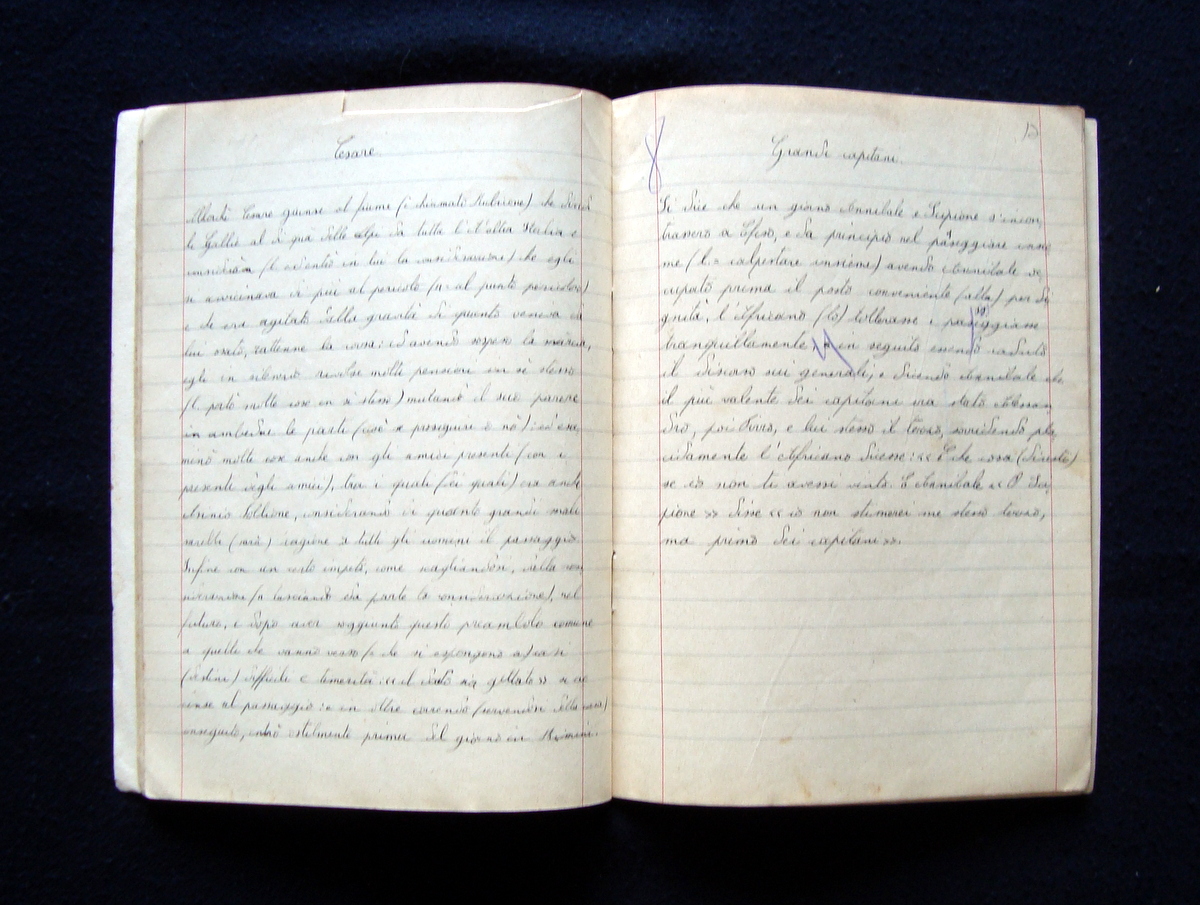 Cesare.
Allorchè Cesare giunse al fiume (è chiamato Rubicone) che divide
le Gallie al di quà delle alpi da tutta l'altra Italia e
(l. entrò in lui la considerazione) che egli
si avvicinava di più al pericolo (l. al punto pericoloso)
e che era agitato dalla gravità di quanto veniva da
lui osato, rattenne la corsa: ed avendo sospeso la marcia,
egli in silenzio rivolse molti pensieri in sè stesso
(l. portò molte cose in sè stesso) mutando il suo parere
in ambedue le parti (cioè a proseguire o nò): ed esa
minò molte cose anche con gli amici presenti (con i
presenti degli amici), tra i quali (dei quali) era anche
Asinio Pollione, considerando di quanto grandi mali
sarebbe (sarà) cagione a tutti gli uomini il passaggio.
Infine con un certo impeto, come scagliandosi, dalla con
siderazione (l. lasciando da parte la considerazione), nel
futuro, e dopo aver soggiunto questo preambolo comune
a quelli che vanno verso (o che si espongono a) casi
(destini) difficili e temerità: «il dado sia gettato» si ac
cinse al passaggio: e in oltre correndo (servendosi della corsa)
in seguito, entrò ostilmente prima del giorno in Rimini.
8
13
Grandi capitani.
Si dice che un giorno Annibale e Scipione s'incon
trassero a Efeso, e da principio nel passeggiare insie
me (l. = calpestare insieme) avendo Annibale oc
cupato prima il posto conveniente (alla) per di
gnità, l'Africano (lo) tollerasse e passeggiasse
tranquillamente in seguito essendo caduto
il discorso sui generali; e dicendo Annibale che
il più valente dei capitani era stato Alessan
dro, poi Pirro, e lui stesso il terzo, sorridendo pla
cidamente l'Africano disse: «E che cosa (diresti)
se io non ti avessi vinto. E Annibale «O Sci
pione» disse «io non stimerei me stesso terzo,
ma primo dei capitani».